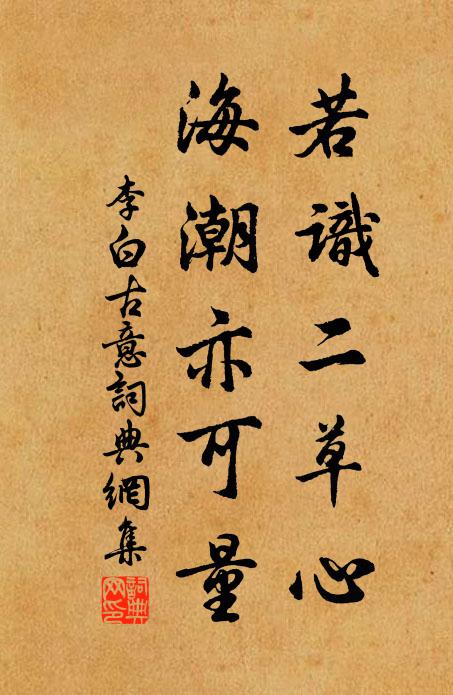 若識二草心
海潮亦可量
李白古意詞典網集
詞典网印